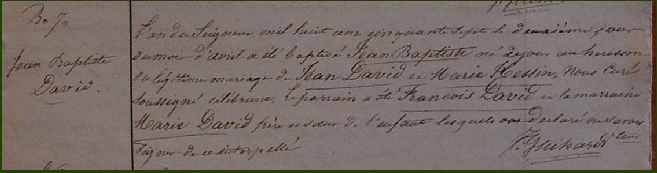 B. 7.
Jean Baptiste
David.
L'an du Seigneur mil huit cent cinquante sept le deuxième jour
du mois d'avril a été baptisé Jean Baptiste né ce jour au hérisson
du légitime mariage de Jean David et Marie Hessin, Nous Curé
soussigné célébrant, le parrain a été François David et la marraine
Marie David frère et sœur de l'enfant lesquels ont déclaré ne savoir
signer de ce interpellé
J. Guihard